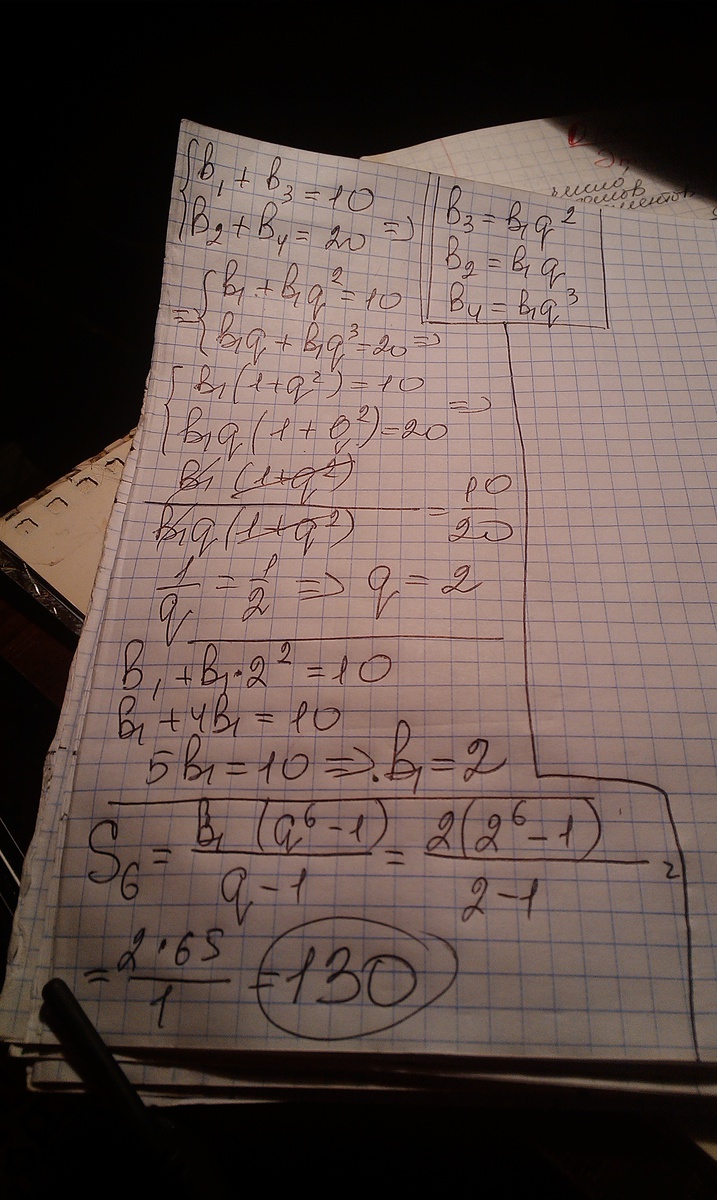 { b₁ + b₃ = 10
{ b₂ + b₄ = 20 =>
b₃ = b₁q²
b₂ = b₁q
b₄ = b₁q³
=> { b₁ + b₁q² = 10
{ b₁q + b₁q³ = 20 =>
{ b₁(1+q²) = 10
{ b₁q(1+q²) = 20 =>
b₁(1+q²) / b₁q(1+q²) = 10/20
1/q = 1/2 => q = 2
b₁ + b₁·2² = 10
b₁ + 4b₁ = 10
5b₁ = 10 => b₁ = 2
S₆ = b₁(q⁶-1) / q-1 = 2(2⁶-1) / 2-1 =
= 2·65 / 1 = 130
число